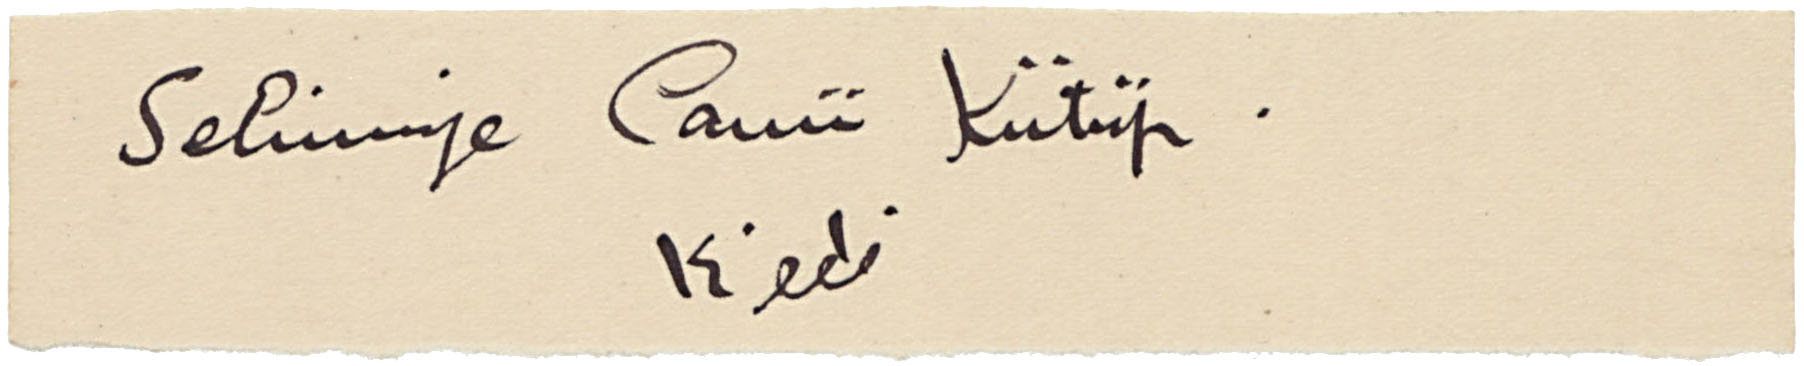 Selimije Camii Kütüp.
Kjedi